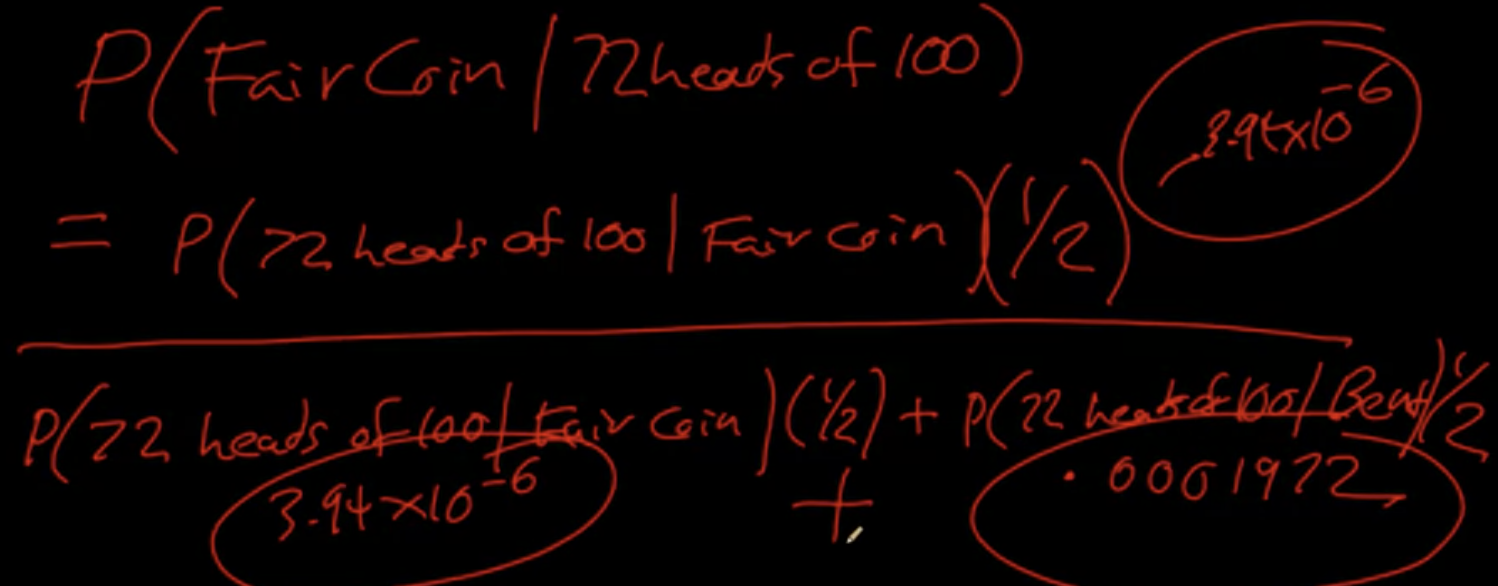 P(Fair Coin / 72 heads of 100)
3.94x10^-6
= P(72 heads of 100 | Fair coin)(1/2)
P(72 heads of 100 / Fair Coin)(1/2) + P(72 heads of 100 / Bent) 1/2
3.94x10^-6 + .0001972